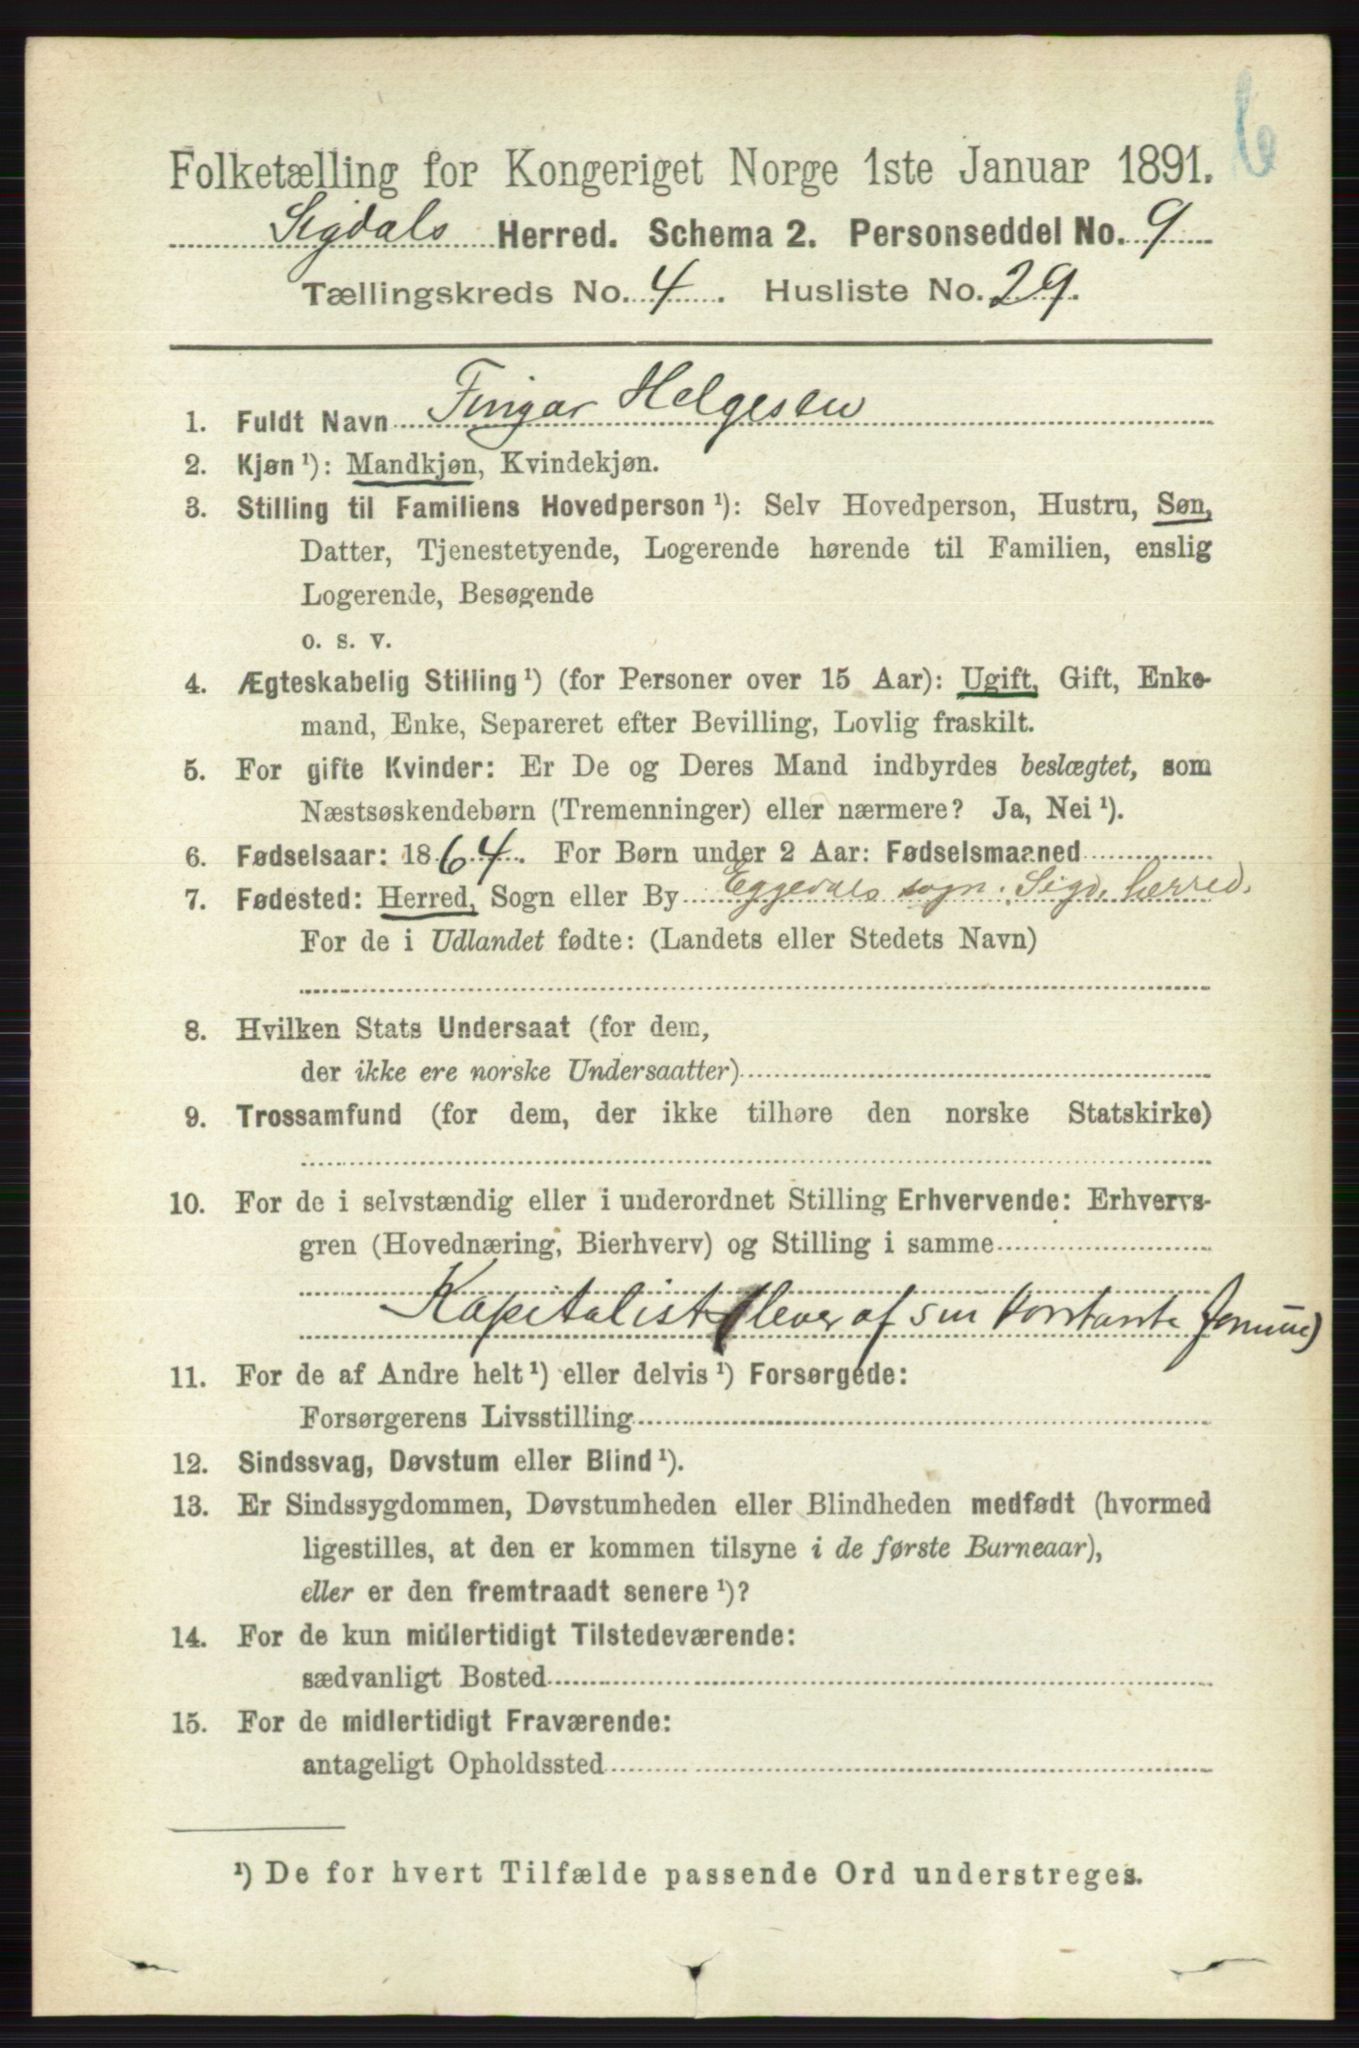 6
Folketælling for Kongeriget Norge 1ste Januar 1891.
Sigdals Herred. Schema 2. Personseddel No. 9
Tællingskreds No. 4. Husliste No. 29.
1. Fuldt Navn Fingar Helgesen
2. Kjøn ¹): Mandkjøn, Kvindekjøn.
3. Stilling til Familiens Hovedperson ¹): Selv Hovedperson, Hustru, Søn,
Datter, Tjenestetyende, Logerende hørende til Familien, enslig
Logerende, Besøgende
o. s. v.
4. Ægteskabelig Stilling ¹) (for Personer over 15 Aar): Ugift, Gift, Enke-
mand, Enke, Separeret efter Bevilling, Lovlig fraskilt.
5. For gifte Kvinder: Er De og Deres Mand indbyrdes beslægtet, som
Næstsøskendebørn (Tremenninger) eller nærmere? Ja, Nei ¹).
6. Fødselsaar: 1864. For Børn under 2 Aar: Fødselsmaaned
7. Fødested: Herred, Sogn eller By Eggedals sogn. Sigd. herred.
For de i Udlandet fødte: (Landets eller Stedets Navn)
8. Hvilken Stats Undersaat (for dem,
der ikke ere norske Undersaatter)
9. Trossamfund (for dem, der ikke tilhøre den norske Statskirke)
10. For de i selvstændig eller i underordnet Stilling Erhvervende: Erhvervs-
gren (Hovednæring, Bierhverv) og Stilling i samme
Kapitalist (lever af sin kontante
11. For de af Andre helt ¹) eller delvis ¹) Forsørgede:
Forsørgerens Livsstilling
12. Sindssvag, Døvstum eller Blind ¹).
13. Er Sindssygdommen, Døvstumheden eller Blindheden medfødt (hvormed
ligestilles, at den er kommen tilsyne i de første Barneaar),
eller er den fremtraadt senere ¹)?
14. For de kun midlertidigt Tilstedeværende:
sædvanligt Bosted
15. For de midlertidigt Fraværende:
antageligt Opholdssted
¹) De for hvert Tilfælde passende Ord understreges.